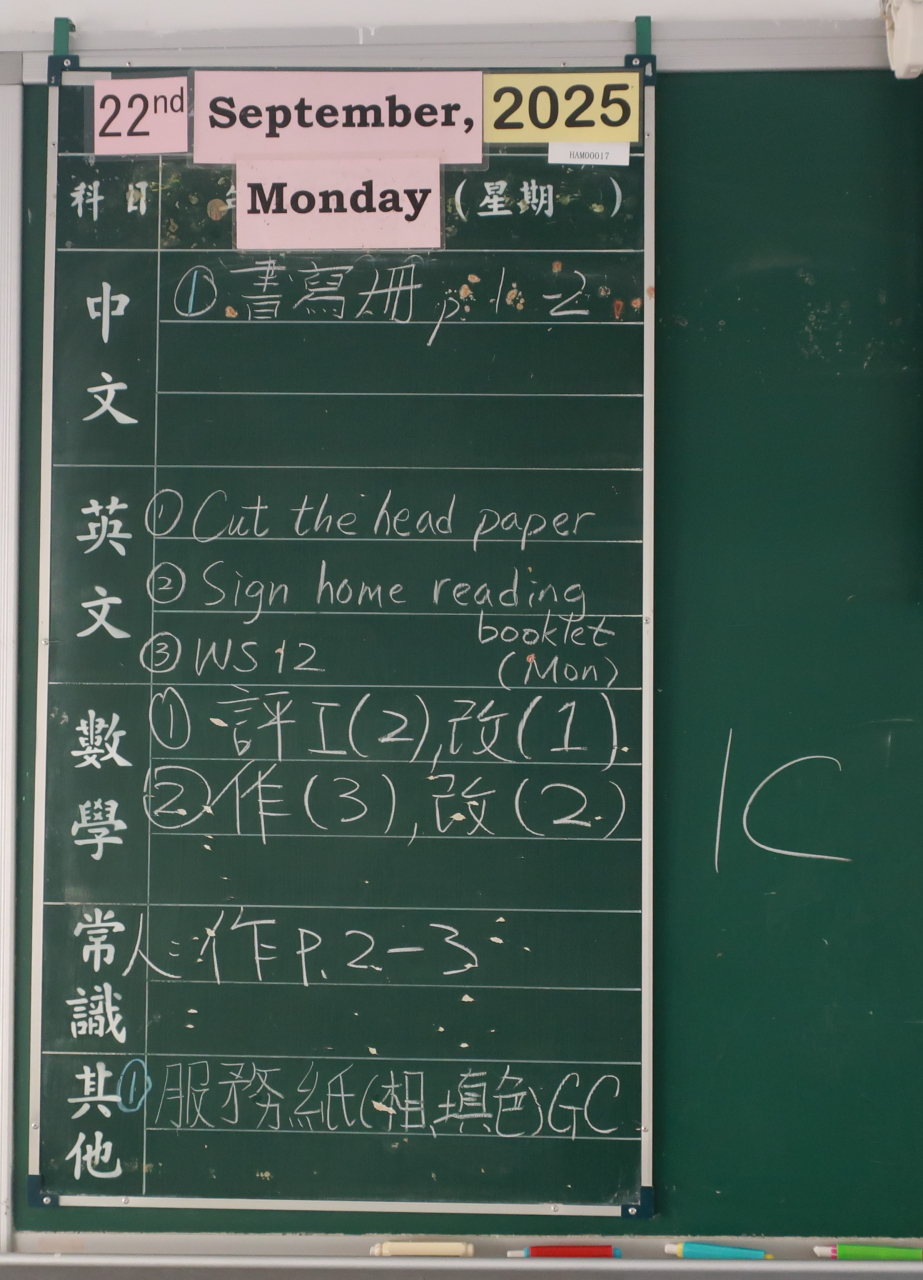 22nd September, 2025
HAM00017
科目 Monday (星期 )
中文
① 書寫冊 p.1-2
英文
① Cut the head paper
② Sign home reading
booklet
③ WS 12 (Mon)
數學
① 評I(2),改(1)
② 作(3),改(2)
1C
常識
人: 作 P.2-3
其他
① 服務紙(相,填色)GC